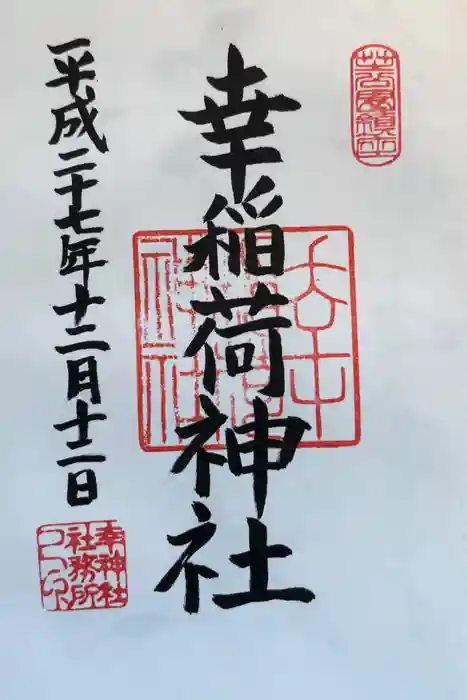 幸稲荷神社
平成二十七年十二月十二日
幸神社
社務所
之印